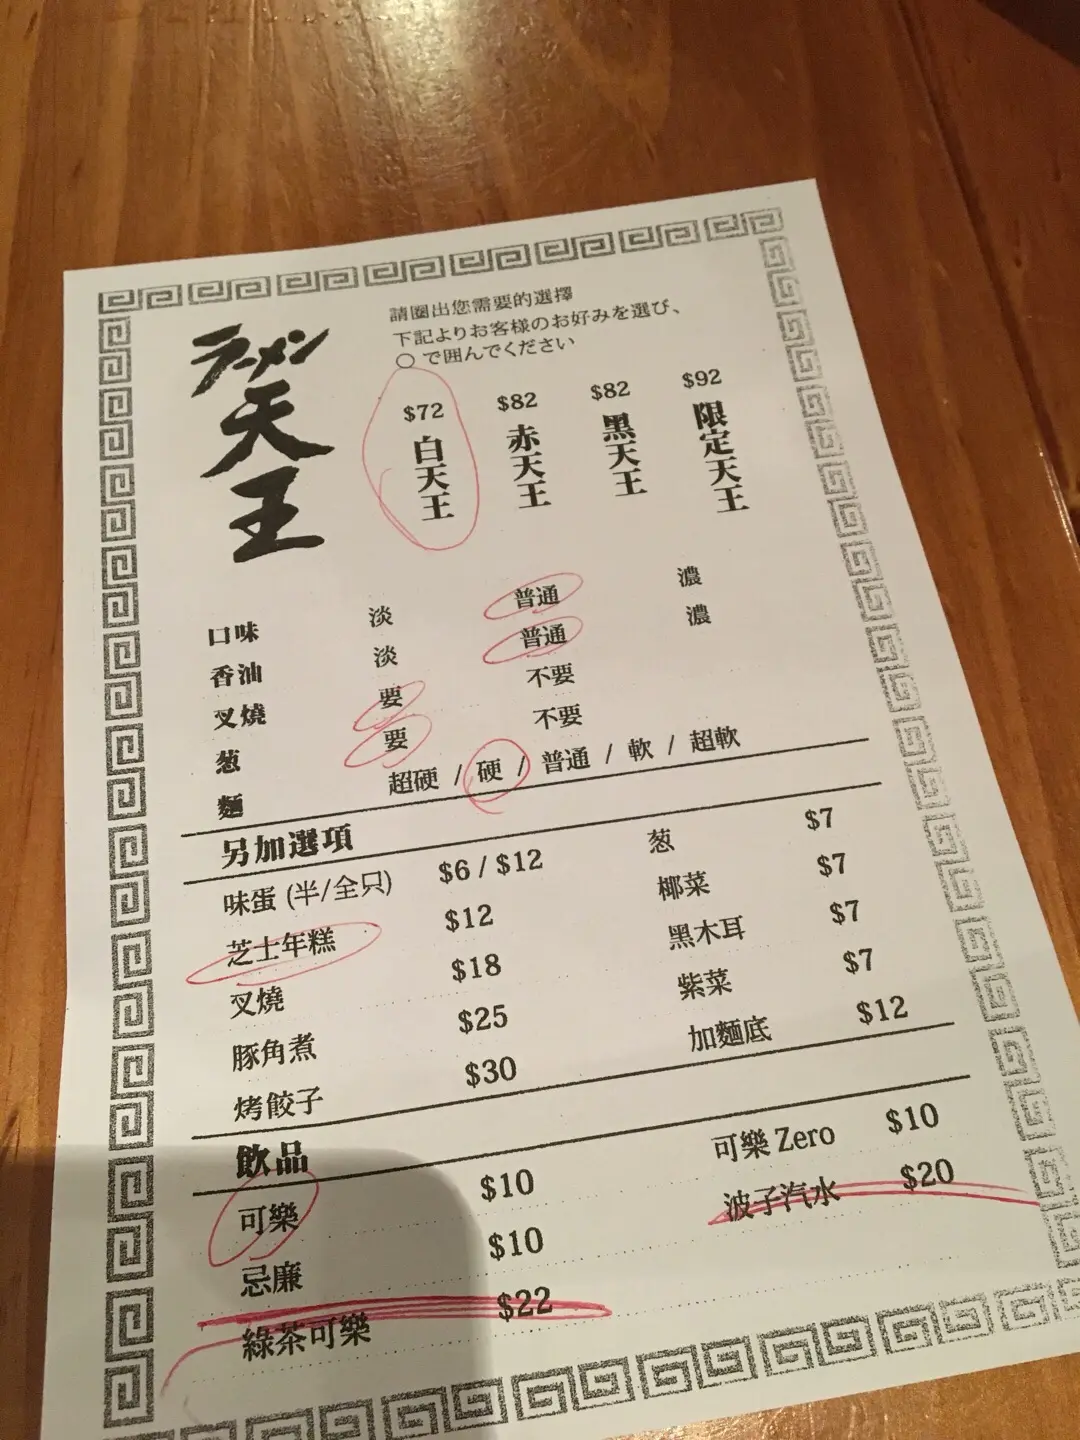 ラーメン
天王
請圈出您需要的選擇
下記よりお客様のお好みを選び、
○で囲んでください
$72 $82 $82 $92
白天王 赤天王 黑天王 限定天王
口味 淡 普通 濃
香油 淡 普通 濃
叉燒 要 不要
葱 要 不要
麵 超硬 / 硬 / 普通 / 軟 / 超軟
另加選項
味蛋 (半/全只) $6 / $12 葱 $7
芝士年糕 $12 椰菜 $7
叉燒 $18 黑木耳 $7
豚角煮 $25 紫菜 $7
烤餃子 $30 加麵底 $12
飲品
可樂 $10 可樂 Zero $10
忌廉 $10 波子汽水 $20
綠茶可樂 $22